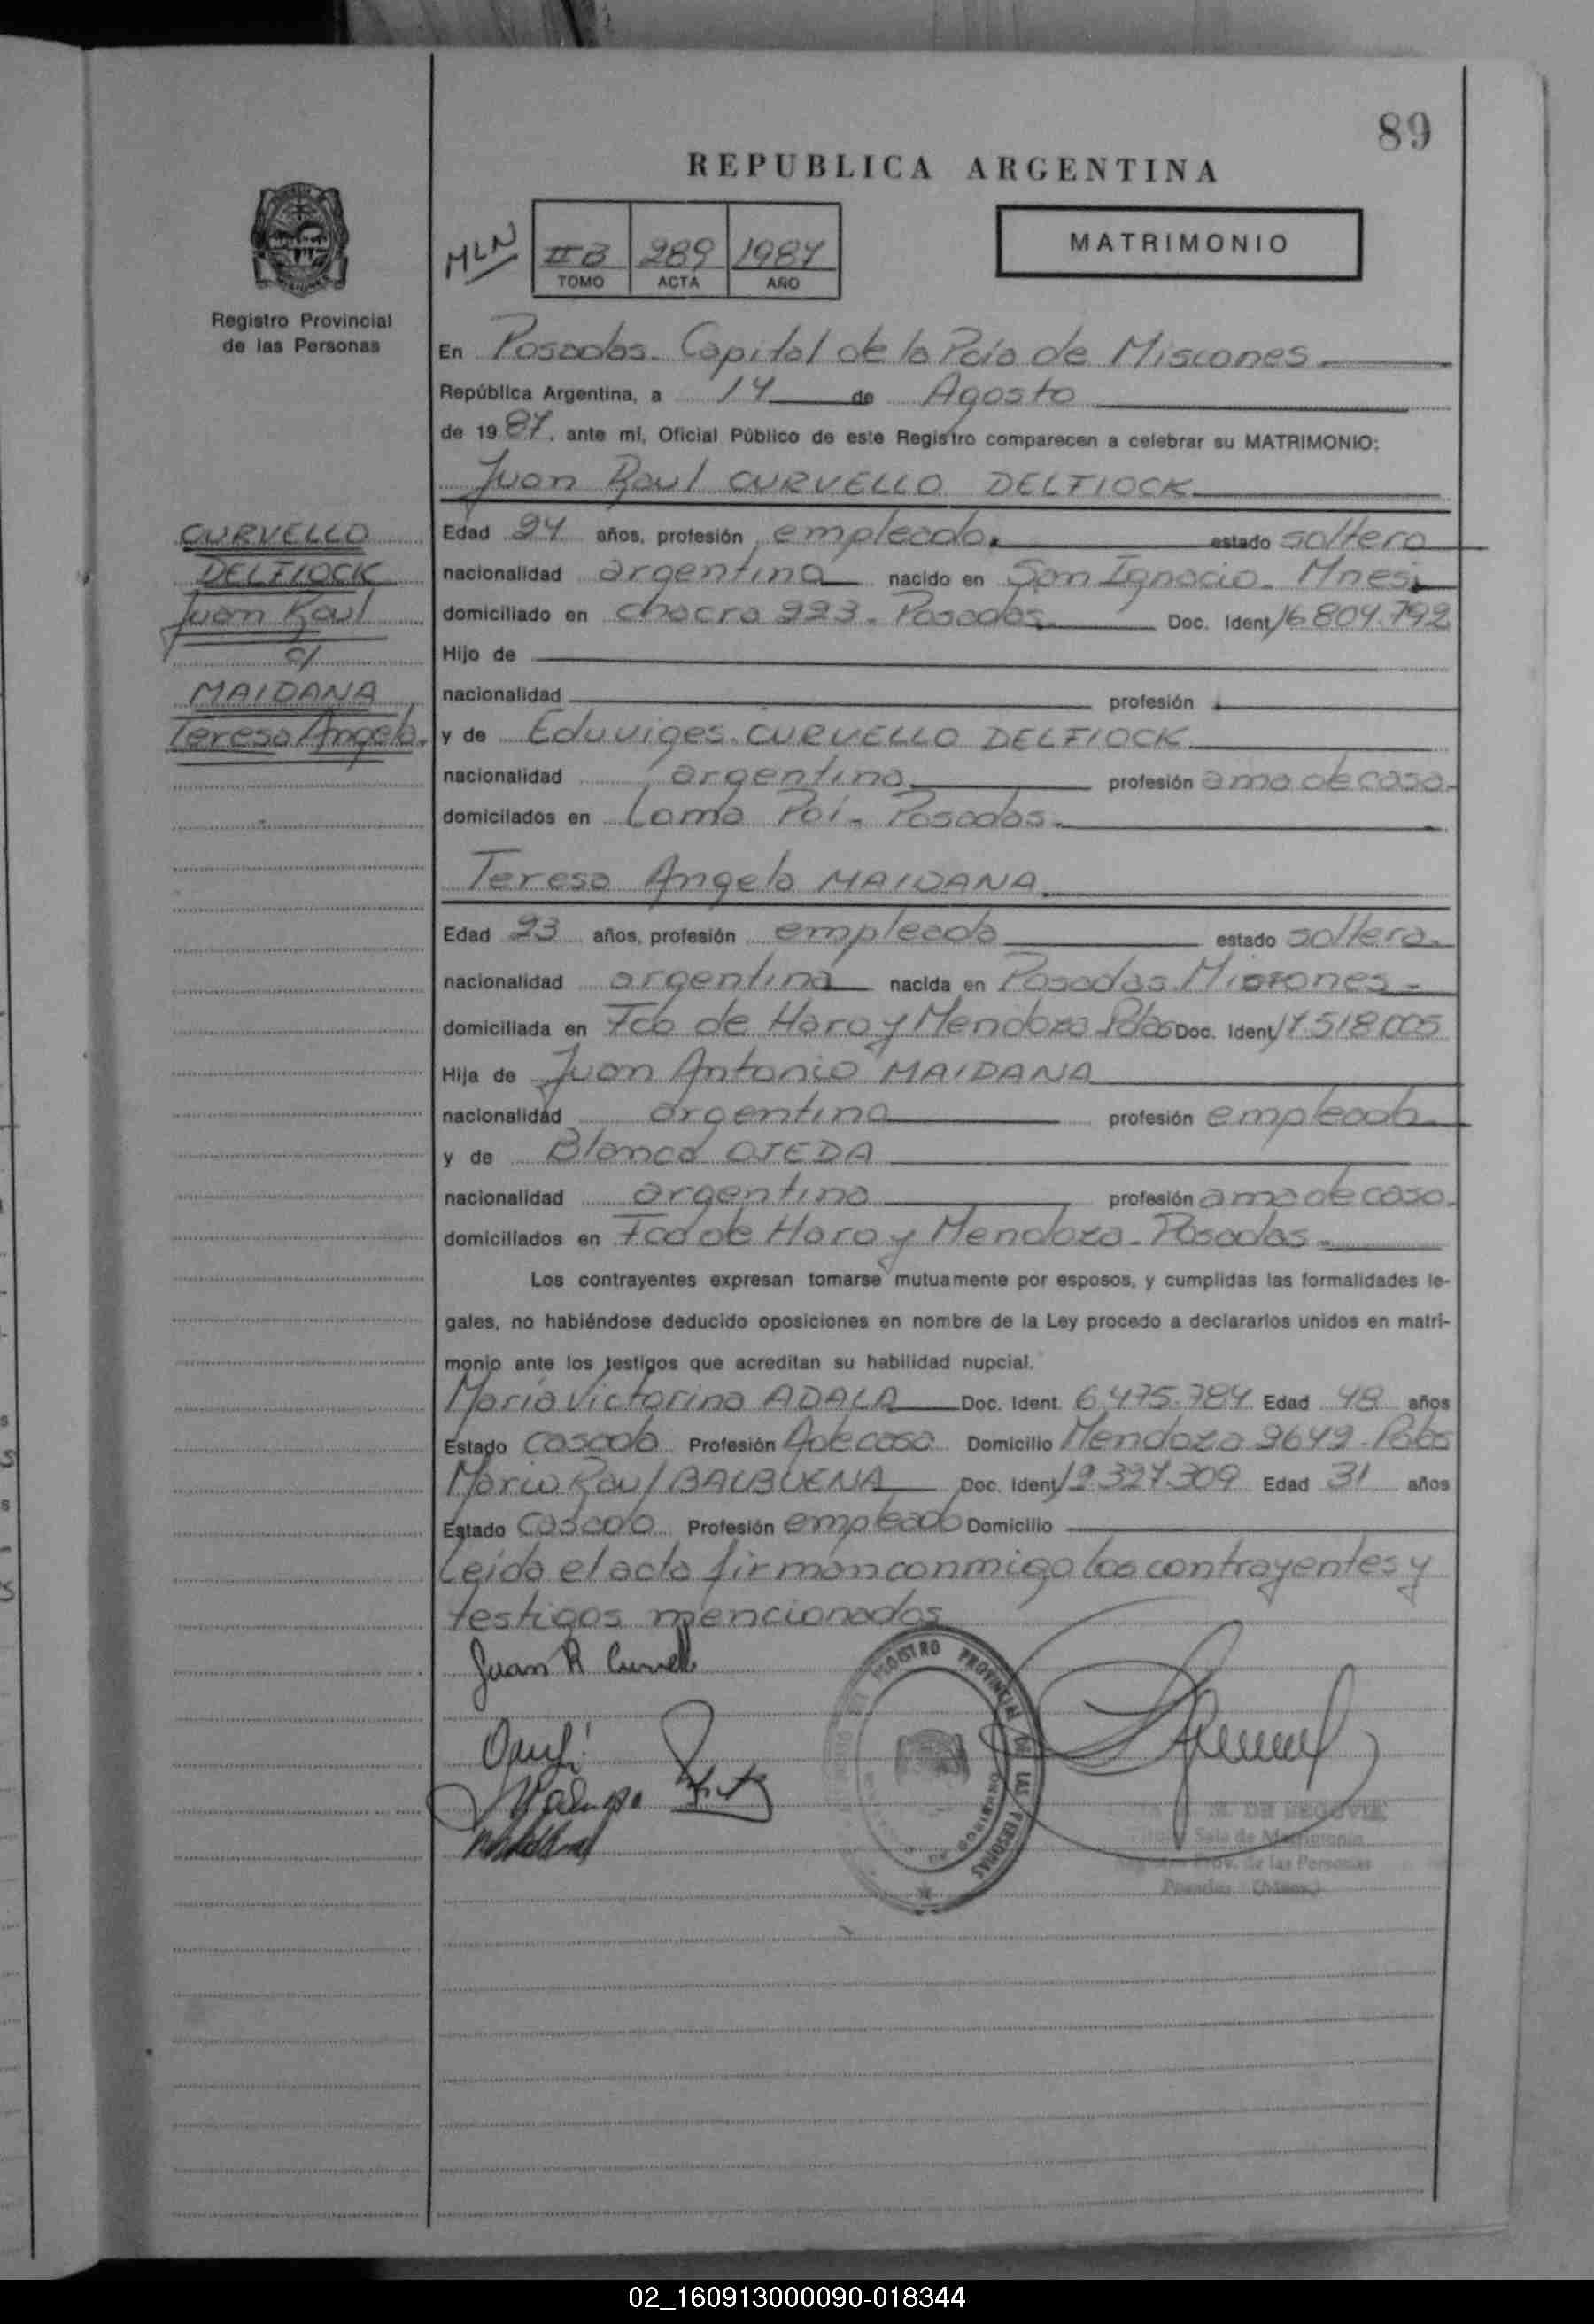 89
REPUBLICA ARGENTINA
MLN
II B 289 1987
TOMO ACTA AÑO
MATRIMONIO
Registro Provincial
de las Personas
En Posadas. Capital de la Pcia de Misiones
República Argentina, a 14 de Agosto
de 1987, ante mí, Oficial Público de este Registro comparecen a celebrar su MATRIMONIO:
Juan Raul CURVELLO DELFIOCK
CURVELLO
DELFIOCK
Juan Raul
c/
MAIDANA
Teresa Angela.
Edad 24 años, profesión empleado. estado soltero
nacionalidad argentina nacido en San Ignacio. Mnes.
domiciliado en chacra 223. Posadas. Doc. Ident. 16.804.792
Hijo de
nacionalidad profesión
y de Eduviges. CURVELLO DELFIOCK
nacionalidad argentina profesión ama de casa.
domicilados en Loma Poi. Posadas.
Teresa Angela MAIDANA
Edad 23 años, profesión empleada estado soltera.
nacionalidad argentina nacida en Posadas. Misiones
domiciliada en Fco de Haro y Mendoza Pdas Doc. Ident. 17.518.005
Hija de Juan Antonio MAIDANA
nacionalidad argentina profesión empleado
y de Blanca OJEDA
nacionalidad argentina profesión ama de casa.
domiciliados en Fco de Haro y Mendoza. Posadas.
Los contrayentes expresan tomarse mutuamente por esposos, y cumplidas las formalidades le-
gales, no habiéndose deducido oposiciones en nombre de la Ley procedo a declararlos unidos en matri-
monio ante los testigos que acreditan su habilidad nupcial.
María Victorina ADALA Doc. Ident. 6.475.784 Edad 48 años
Estado casada Profesión A de casa Domicilio Mendoza 2649. Pdas
Mario Raul BALBUENA Doc. Ident. 12.327.309 Edad 31 años
Estado Casado Profesión empleado Domicilio
Leida el acta firman conmigo los contrayentes y
testigos mencionados
Juan R Curvello
REGISTRO PROVINCIAL DE LAS PERSONAS
M. DE SEGOVIA
Sala de Matrimonio
Registro Prov. de las Personas
Posadas (Mnes.)
02_160913000090-018344